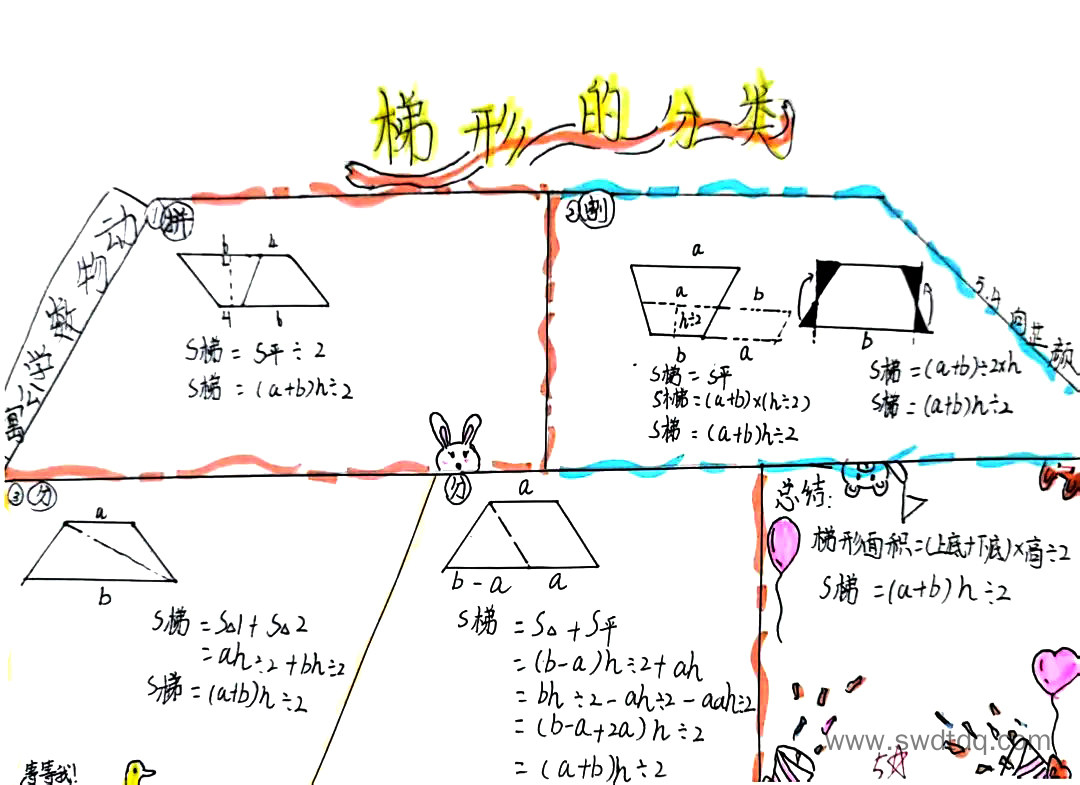 梯形的分类
动物数学公寓
①拼
b 4
4 b
S梯 = S平 ÷ 2
S梯 = (a+b)h÷2
②割
a
a b
h÷2
b a
S梯 = S平
S梯=(a+b)×(h÷2)
S梯 = (a+b)h÷2
b
S梯=(a+b)÷2×h
S梯=(a+b)h÷2
5.4 向芷颜
③分
a
b
S梯 = S△1 + S△2
= ah÷2 + bh÷2
S梯=(a+b)h÷2
分
a
b-a a
S梯 = S△ + S平
= (b-a)h÷2+ah
= bh÷2-ah÷2-aah÷2
= (b-a+2a)h÷2
= (a+b)h÷2
总结:
梯形面积=(上底+下底)×高÷2
S梯 =(a+b)h÷2
等等我!
www.swdtdq.com
5☆